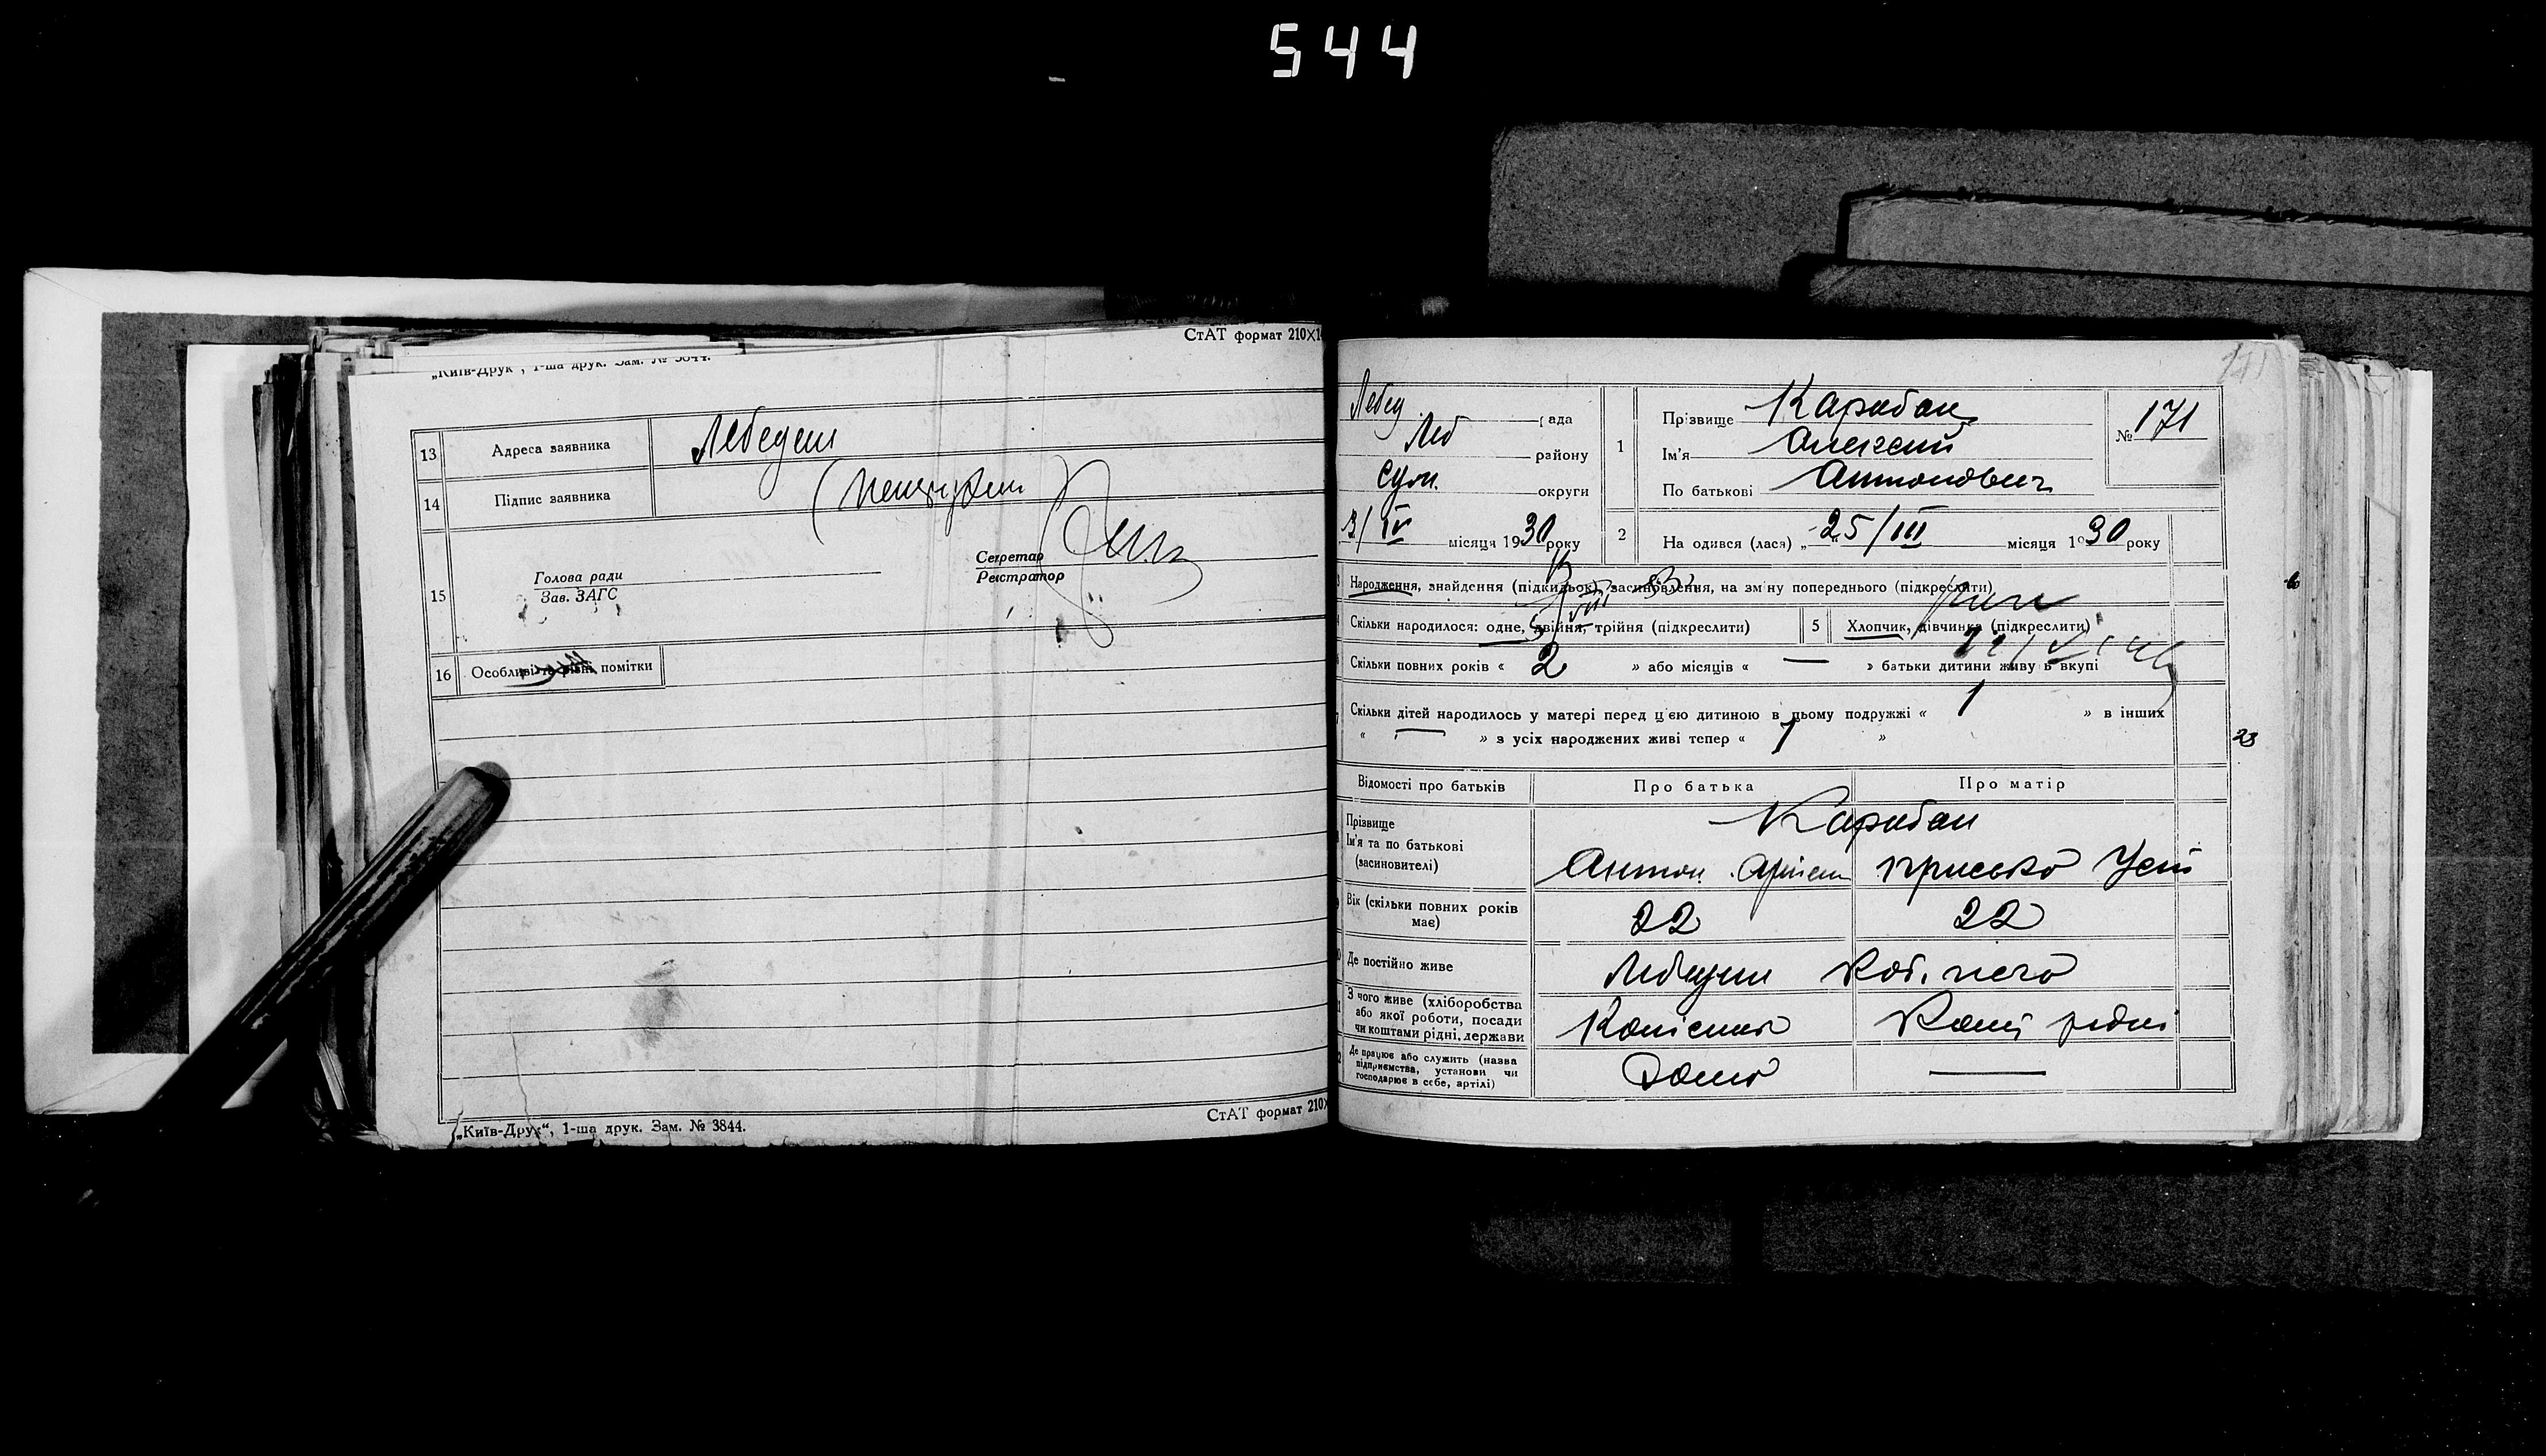 544
СтАТ формат 210×1
„Київ-Друк", 1-ша друк. Зам. № 3844.
13 Адреса заявника Лебедин
14 Підпис заявника
15 Голова ради
Зав. ЗАГС
Секретар
Реєстратор
16 Особливі та різні помітки
„Київ-Друк“, 1-ша друк. Зам. № 3844.
СтАТ формат 210×
171
Лебед рада
Леб району
Сум. округи
3/IV місяця 1930 року
1 Прізвище Карабан
Ім'я Алексей
По батькові Антонович
№ 171
2 На одився (лася) „25/III місяця 1930 року
Народження, знайдення (підкидьок), засиновлення, на зміну попереднього (підкреслити)
Скільки народилося: одне, двійня, трійня (підкреслити)
5 Хлопчик, дівчинка (підкреслити)
Скільки повних років « 2 » або місяців « — » батьки дитини живуть вкупі
Скільки дітей народилось у матері перед цією дитиною в цьому подружжі « 1 » в інших
« — » з усіх народжених живі тепер « 1 »
23
Відомості про батьків Про батька Про матір
Прізвище Карабан
Ім'я та по батькові
(засиновителі) Антон Приська Уст
Вік (скільки повних років
має) 22 22
Де постійно живе Лебедин
З чого живе (хліборобства
або якої роботи, посади
чи коштами рідні, держави
рідні
Де працює або служить (назва
підприємства, установи чи
господарює в себе, артілі) Дома —